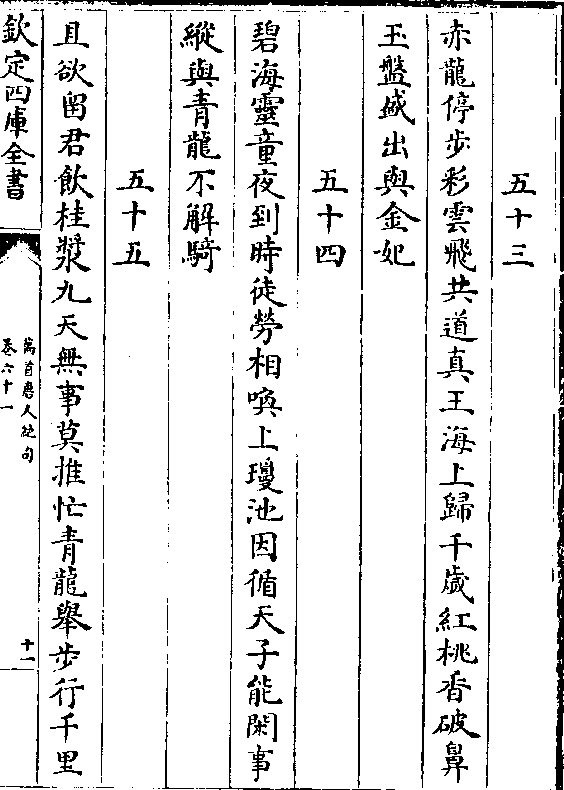 五十三
赤龍停步彩雲飛共道真王海上歸千歲紅桃香破鼻
玉盤盛出與金妃
五十四
碧海靈童夜到時徒勞相喚上瓊池因循天子能閑事
縱與青龍不解騎
五十五
且欲留君飲桂漿九天無事莫推忙青龍舉步行千里
欽定四庫全書
萬首唐人絕句
卷六十一
十一